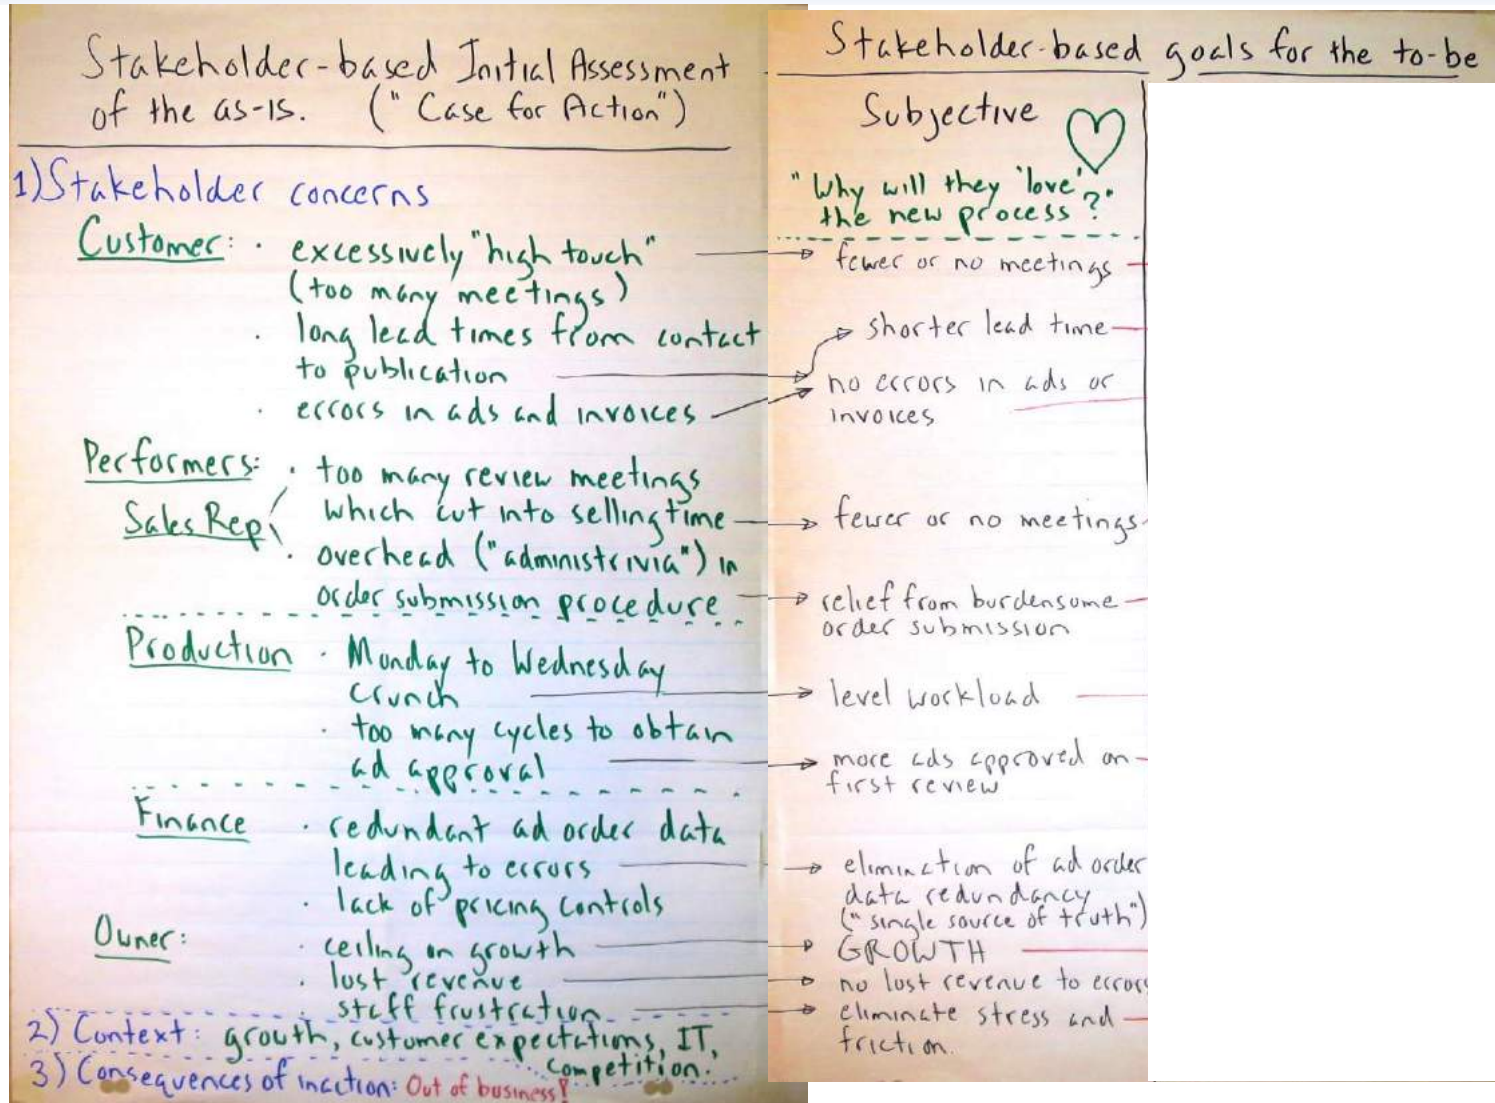 Stakeholder-based Initial Assessment
of the as-is. ("Case for Action")
1) Stakeholder concerns
Customer: · excessively "high touch"
(too many meetings)
· long lead times from contact
to publication
· errors in ads and invoices
Performers: · too many review meetings
Sales Rep which cut into selling time
· overhead ("administrivia") in
order submission procedure
Production · Monday to Wednesday
crunch
· too many cycles to obtain
ad approval
Finance · redundant ad order data
leading to errors
· lack of pricing controls
Owner: · ceiling on growth
· lost revenue
· staff frustration
2) Context: growth, customer expectations, IT,
competition.
3) Consequences of inaction: Out of business!
Stakeholder-based goals for the to-be
Subjective
"Why will they 'love'
the new process?"
fewer or no meetings
shorter lead time
no errors in ads or
invoices
fewer or no meetings
relief from burdensome
order submission
level workload
more ads approved on
first review
elimination of ad order
data redundancy
("single source of truth")
GROWTH
no lost revenue to errors
eliminate stress and
friction.